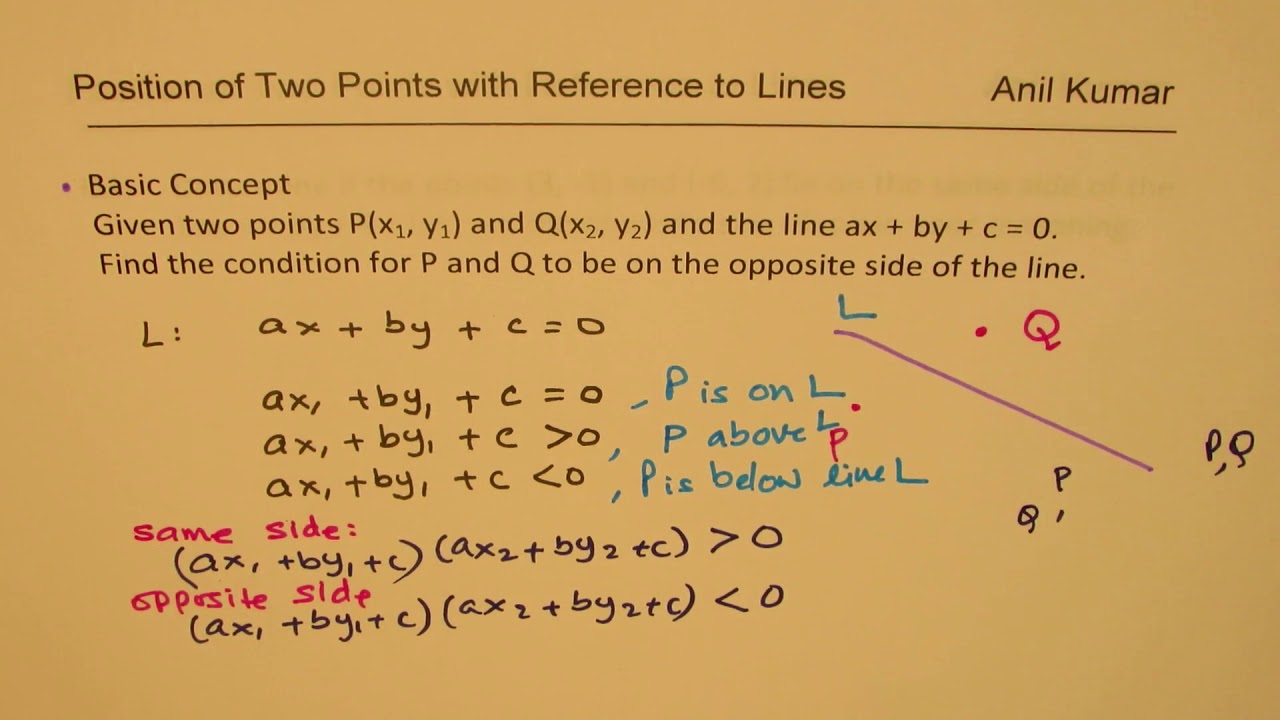 Position of Two Points with Reference to Lines Anil Kumar
• Basic Concept
Given two points P(x₁, y₁) and Q(x₂, y₂) and the line ax + by + c = 0.
Find the condition for P and Q to be on the opposite side of the line.
L: ax + by + c = 0
L
Q
ax₁ + by₁ + c = 0, P is on L
ax₁ + by₁ + c > 0, P above L
P
ax₁ + by₁ + c < 0, P is below line L
P, Q
P
Q,
same side:
(ax₁ + by₁ + c)(ax₂ + by₂ + c) > 0
opposite side
(ax₁ + by₁ + c)(ax₂ + by₂ + c) < 0